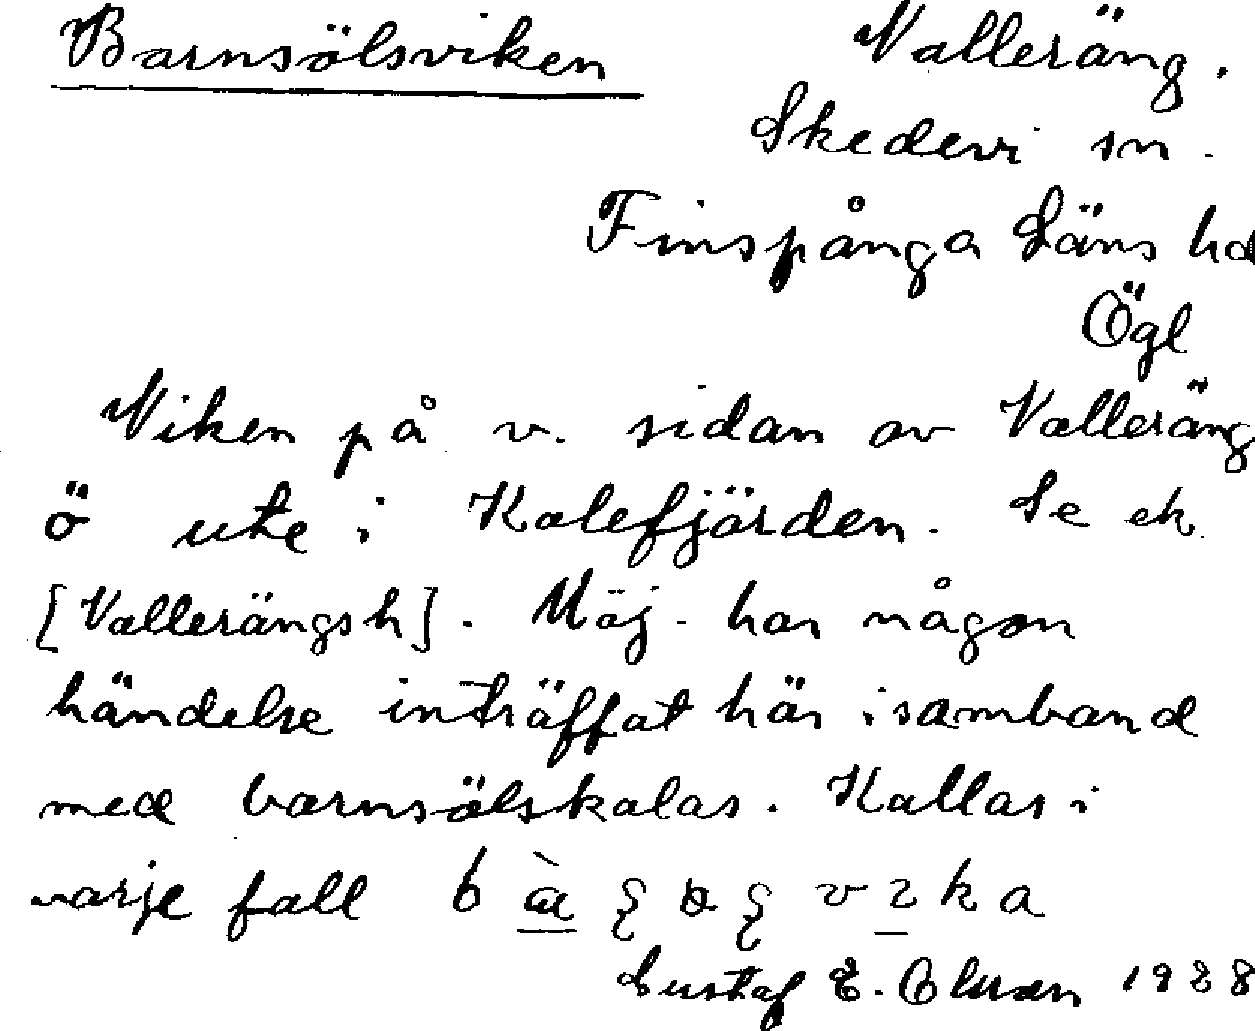 Barnsölsviken Valleräng.
Skedevi sn.
Finspånga Läns hd
Ögl
Viken på v. sidan av Valleräng
ö ute i Kalefjärden. Se ek
[Vallerängsh]. Möj. har någon
händelse inträffat här i samband
med barnsölskalas. Kallas i
varje fall
Gustaf E. Olsson 1928